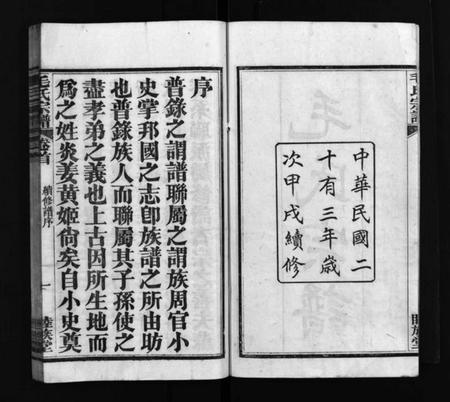 中華民國二
十有三年歲
次甲戌續修
毛氏宗譜
序
普錄之謂譜聯屬之謂族周官小
史掌邦國之志卽族譜之所由昉
也普錄族人而聯屬其子孫使之
盡孝弟之義也上古因所生地而
爲之姓炎姜黃姬尙矣自小史奠
毛氏宗譜
卷首
續修譜序
一
睦族堂